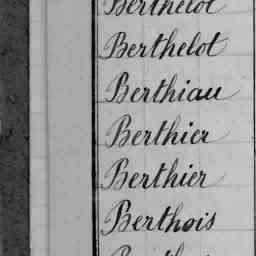 Berthelot
Berthelot
Berthiau
Berthier
Berthier
Berthois